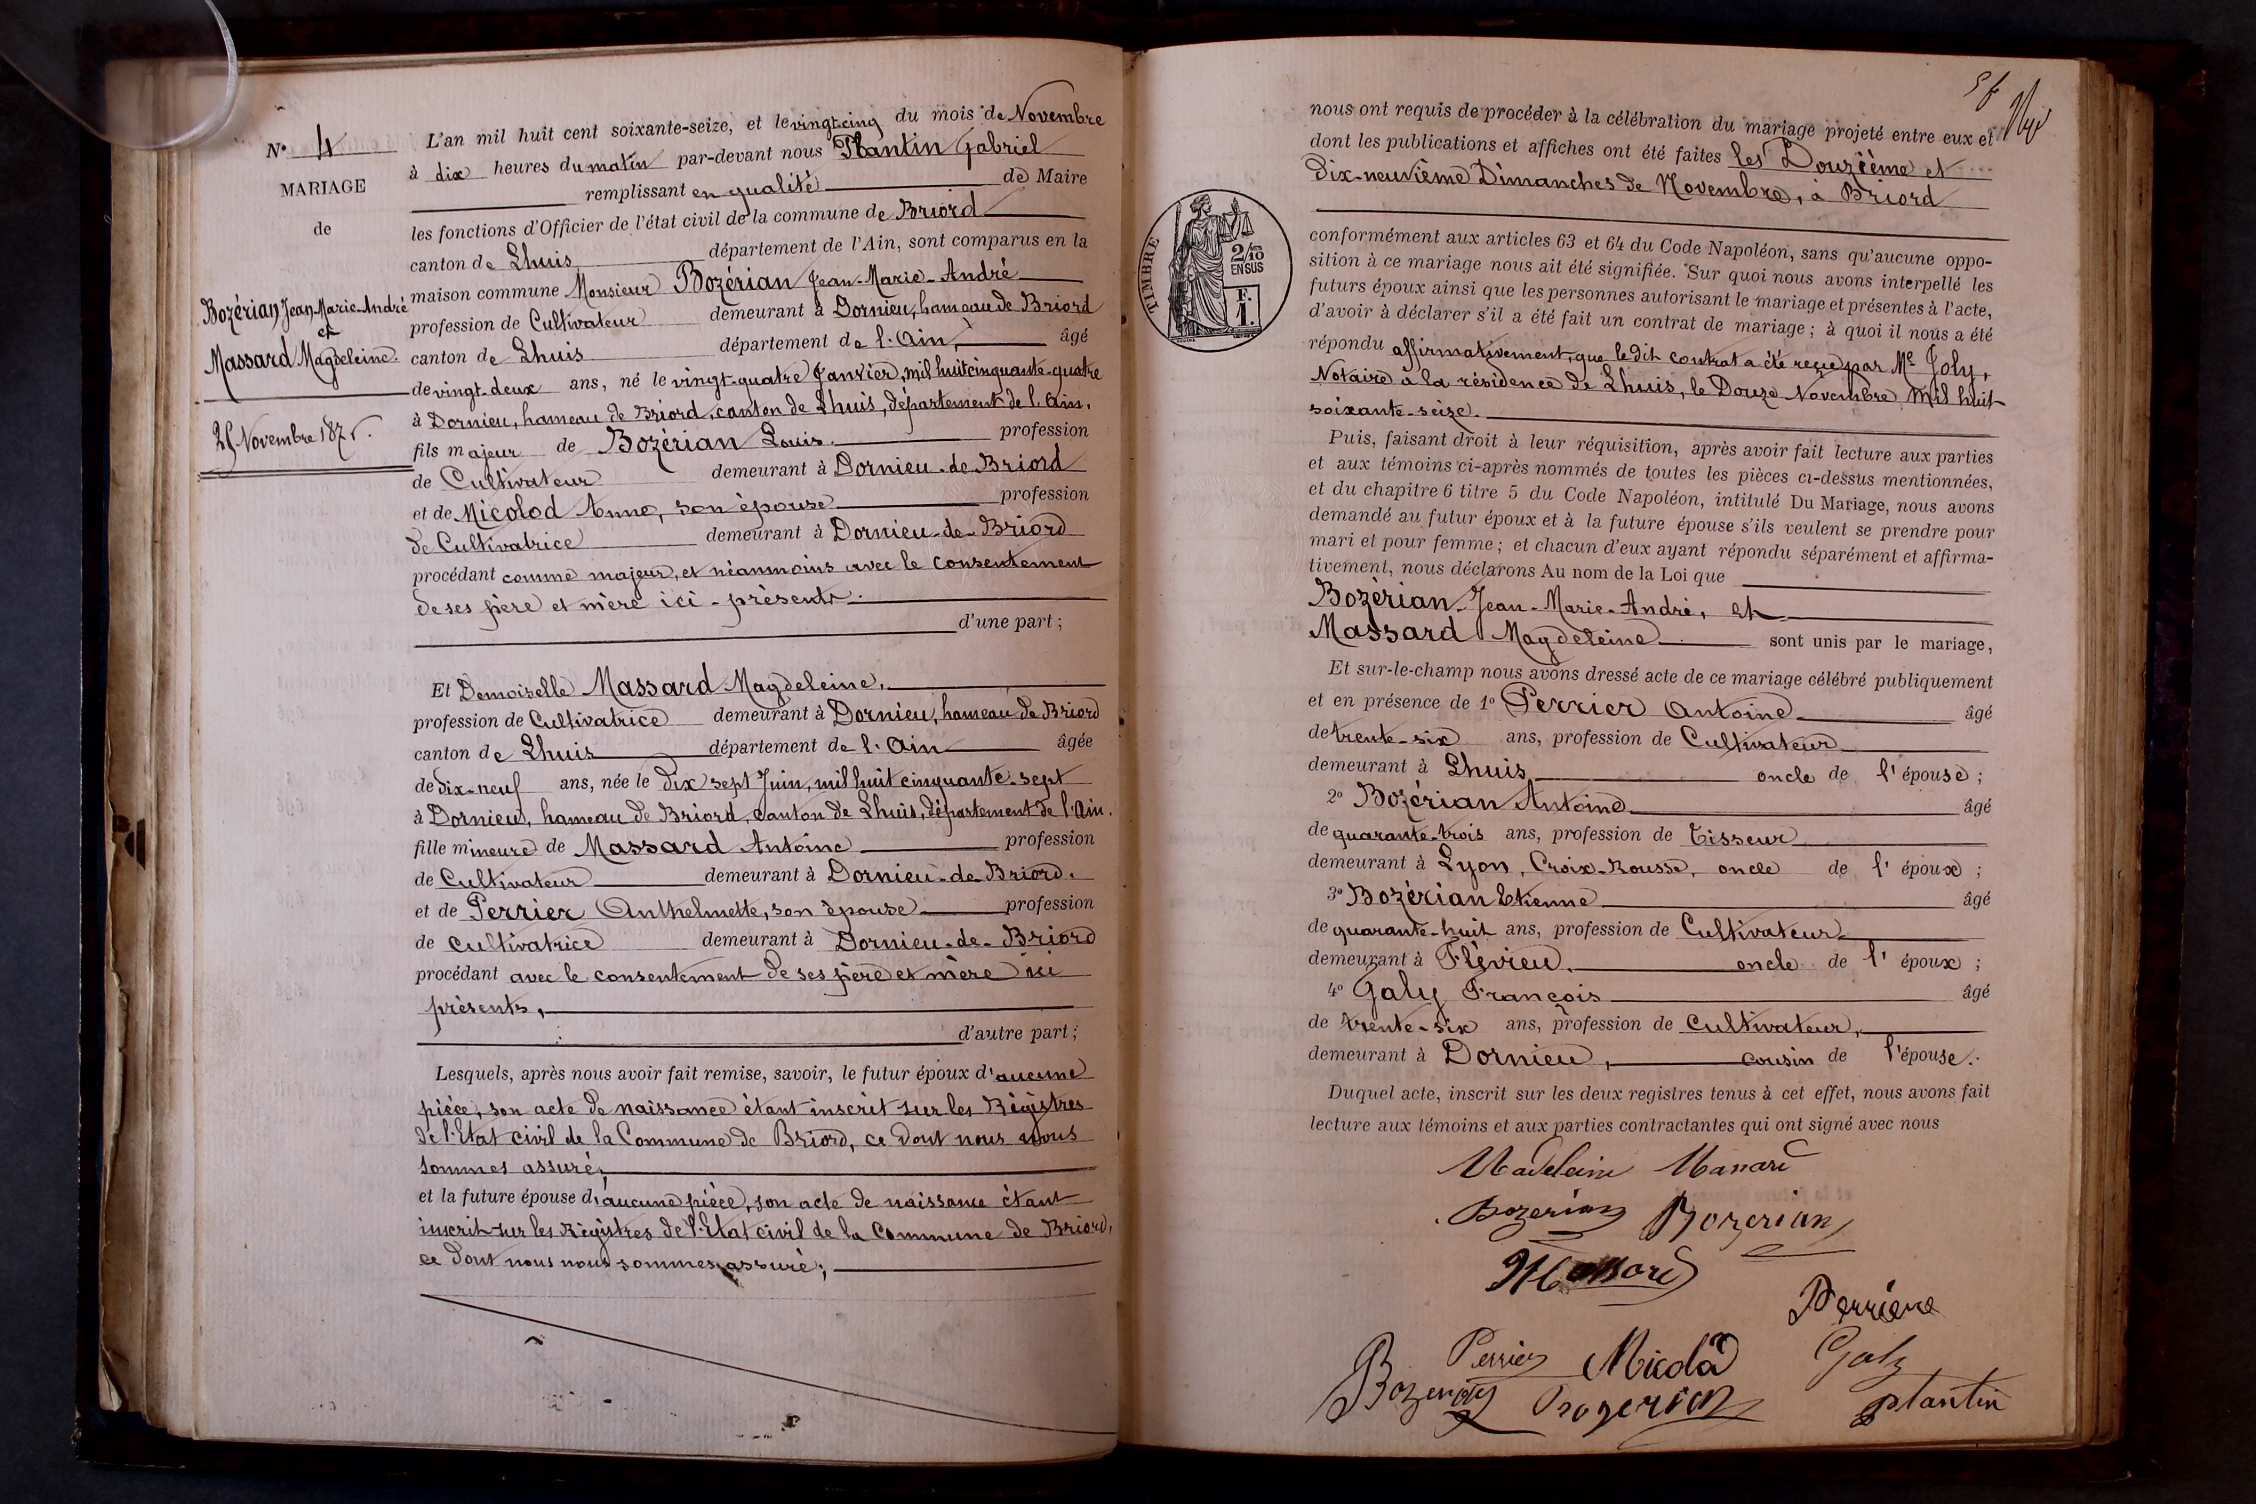 N° 4
MARIAGE
de
Bozérian Jean-Marie-André
et
Massard Magdeleine.
25 Novembre 1876.
L'an mil huit cent soixante-seize, et le vingt-cinq du mois de Novembre
à dix heures du matin par-devant nous Plantin Gabriel
remplissant en qualité de Maire
les fonctions d'Officier de l'état civil de la commune de Briord
canton de Lhuis département de l'Ain, sont comparus en la
maison commune Monsieur Bozérian Jean-Marie-André
profession de Cultivateur demeurant à Dornieu, hameau de Briord
canton de Lhuis département de l'Ain, âgé
de vingt-deux ans, né le vingt-quatre Janvier, mil huit cinquante-quatre
à Dornieu, hameau de Briord, canton de Lhuis, département de l'Ain.
fils majeur de Bozérian Louis. profession
de Cultivateur demeurant à Dornieu-de-Briord
et de Micolod Anne, son épouse profession
de Cultivatrice demeurant à Dornieu-de-Briord
procédant comme majeur, et néanmoins avec le consentement
de ses père et mère ici-présents.
d'une part;
Et Demoiselle Massard Magdeleine,
profession de Cultivatrice demeurant à Dornieu, hameau de Briord
canton de Lhuis département de l'Ain âgée
de dix-neuf ans, née le dix sept Juin, mil huit cinquante-sept
à Dornieu, hameau de Briord, canton de Lhuis, département de l'Ain.
fille mineure de Massard Antoine profession
de Cultivateur demeurant à Dornieu-de-Briord.
et de Perrier Anthelmette, son épouse profession
de cultivatrice demeurant à Dornieu-de-Briord
procédant avec le consentement de ses père et mère ici
présents,
d'autre part;
Lesquels, après nous avoir fait remise, savoir, le futur époux d'aucune
pièce, son acte de naissance étant inscrit sur les Régistres
de l'Etat civil de la Commune de Briord, ce dont nous nous
sommes assuré;
et la future épouse d'aucune pièce, son acte de naissance étant
inscrit sur les Régistres de l'Etat civil de la Commune de Briord,
ce dont nous nous sommes assuré;
nous ont requis de procéder à la célébration du mariage projeté entre eux et
dont les publications et affiches ont été faites les Douzième et
dix-neuvième Dimanches de Novembre, à Briord
TIMBRE
2/10
EN SUS
F.
1.
conformément aux articles 63 et 64 du Code Napoléon, sans qu'aucune oppo-
sition à ce mariage nous ait été signifiée. Sur quoi nous avons interpellé les
futurs époux ainsi que les personnes autorisant le mariage et présentes à l'acte,
d'avoir à déclarer s'il a été fait un contrat de mariage; à quoi il nous a été
répondu affirmativement, que le dit contrat a été reçu par Me Joly,
Notaire à la résidence de Lhuis, le Douze Novembre Mil huit
soixante-seize.
Puis, faisant droit à leur réquisition, après avoir fait lecture aux parties
et aux témoins ci-après nommés de toutes les pièces ci-dessus mentionnées,
et du chapitre 6 titre 5 du Code Napoléon, intitulé Du Mariage, nous avons
demandé au futur époux et à la future épouse s'ils veulent se prendre pour
mari et pour femme; et chacun d'eux ayant répondu séparément et affirma-
tivement, nous déclarons Au nom de la Loi que
Bozérian Jean-Marie-André, et
Massard Magdeleine sont unis par le mariage,
Et sur-le-champ nous avons dressé acte de ce mariage célébré publiquement
et en présence de 1° Perrier Antoine âgé
de trente-six ans, profession de Cultivateur
demeurant à Lhuis, oncle de l'épouse;
2° Bozérian Antoine âgé
de quarante-trois ans, profession de Tisseur
demeurant à Lyon, Croix-Rousse, oncle de l'époux;
3° Bozérian Etienne âgé
de quarante-huit ans, profession de Cultivateur
demeurant à Flévieu, oncle de l'époux;
4° Galy François âgé
de trente-six ans, profession de Cultivateur,
demeurant à Dornieu, cousin de l'épouse.
Duquel acte, inscrit sur les deux registres tenus à cet effet, nous avons fait
lecture aux témoins et aux parties contractantes qui ont signé avec nous
Madeleine Massard
Bozerian Bozerian
Massard
Perriere
Perrier Micolod Galy
Bozerian Bozerian Plantin